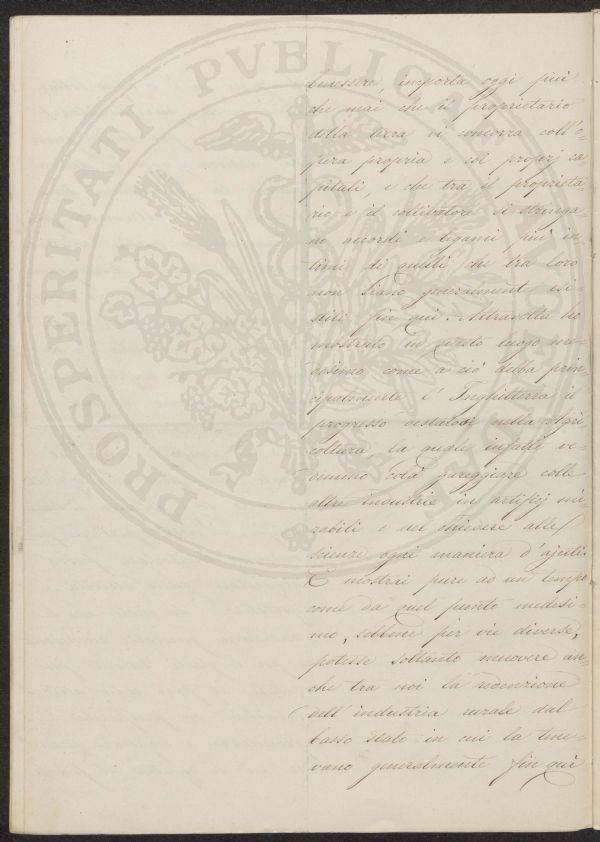 PROSPERITATI PVBLICAE
benessere, importa oggi più
che mai che il proprietario
della terra vi concorra coll'o-
pera propria e coi proprj ca-
pitali, e che tra il proprieta-
rio, e il coltivatore si stringa-
no accordi e legami più in-
timi di quelli che tra loro
non siano generalmente esi-
stiti fin qui. Altravolta ho
mostrato in questo luogo me-
desimo come a ciò debba prin-
cipalmente l'Inghilterra il
progresso nella Agri
coltura, la quale infatti ve-
demmo colà gareggiare colle
altre industrie in artifizj mi
rabili e nel chiedere alle
scienze ogni maniera d'ajuti.
E mostrai pure ad un tempo
come da quel punto medesi-
mo, sebbene per vie diverse,
potesse soltanto muovere an-
che tra noi la redenzione
dell'industria rurale dal
basso stato in cui la tene-
vano generalmente fin qui